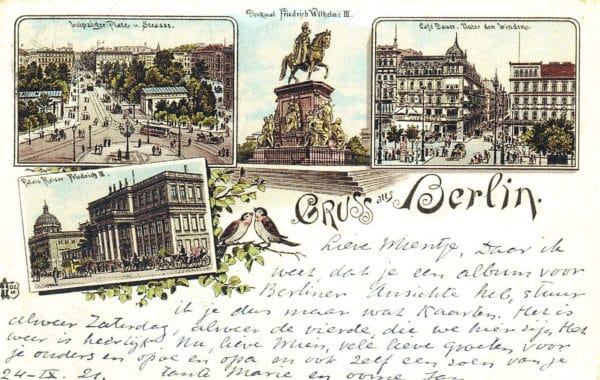 Leipziger-Platz u. Strasse.
Denkmal Friedrich Wilhelm's III.
Café Bauer. Unter den Linden.
Palais Kaiser Friedrich III.
GRUSS aus Berlin.
Lieve Mientje, Daar ik
weet dat je een album voor
Berliner Ansichte heb, stuur
ik je dus maar wat Kaarten. Het is
alweer Zaterdag, alweer de vierde, die we hier zijn. Het
weer is heerlijk. Nu, lieve Mien, vele lieve groeten voor
je ouders en opoe en opa en ook zelf een zoen van je
tante Marie en oome Jan
24-IX-21.